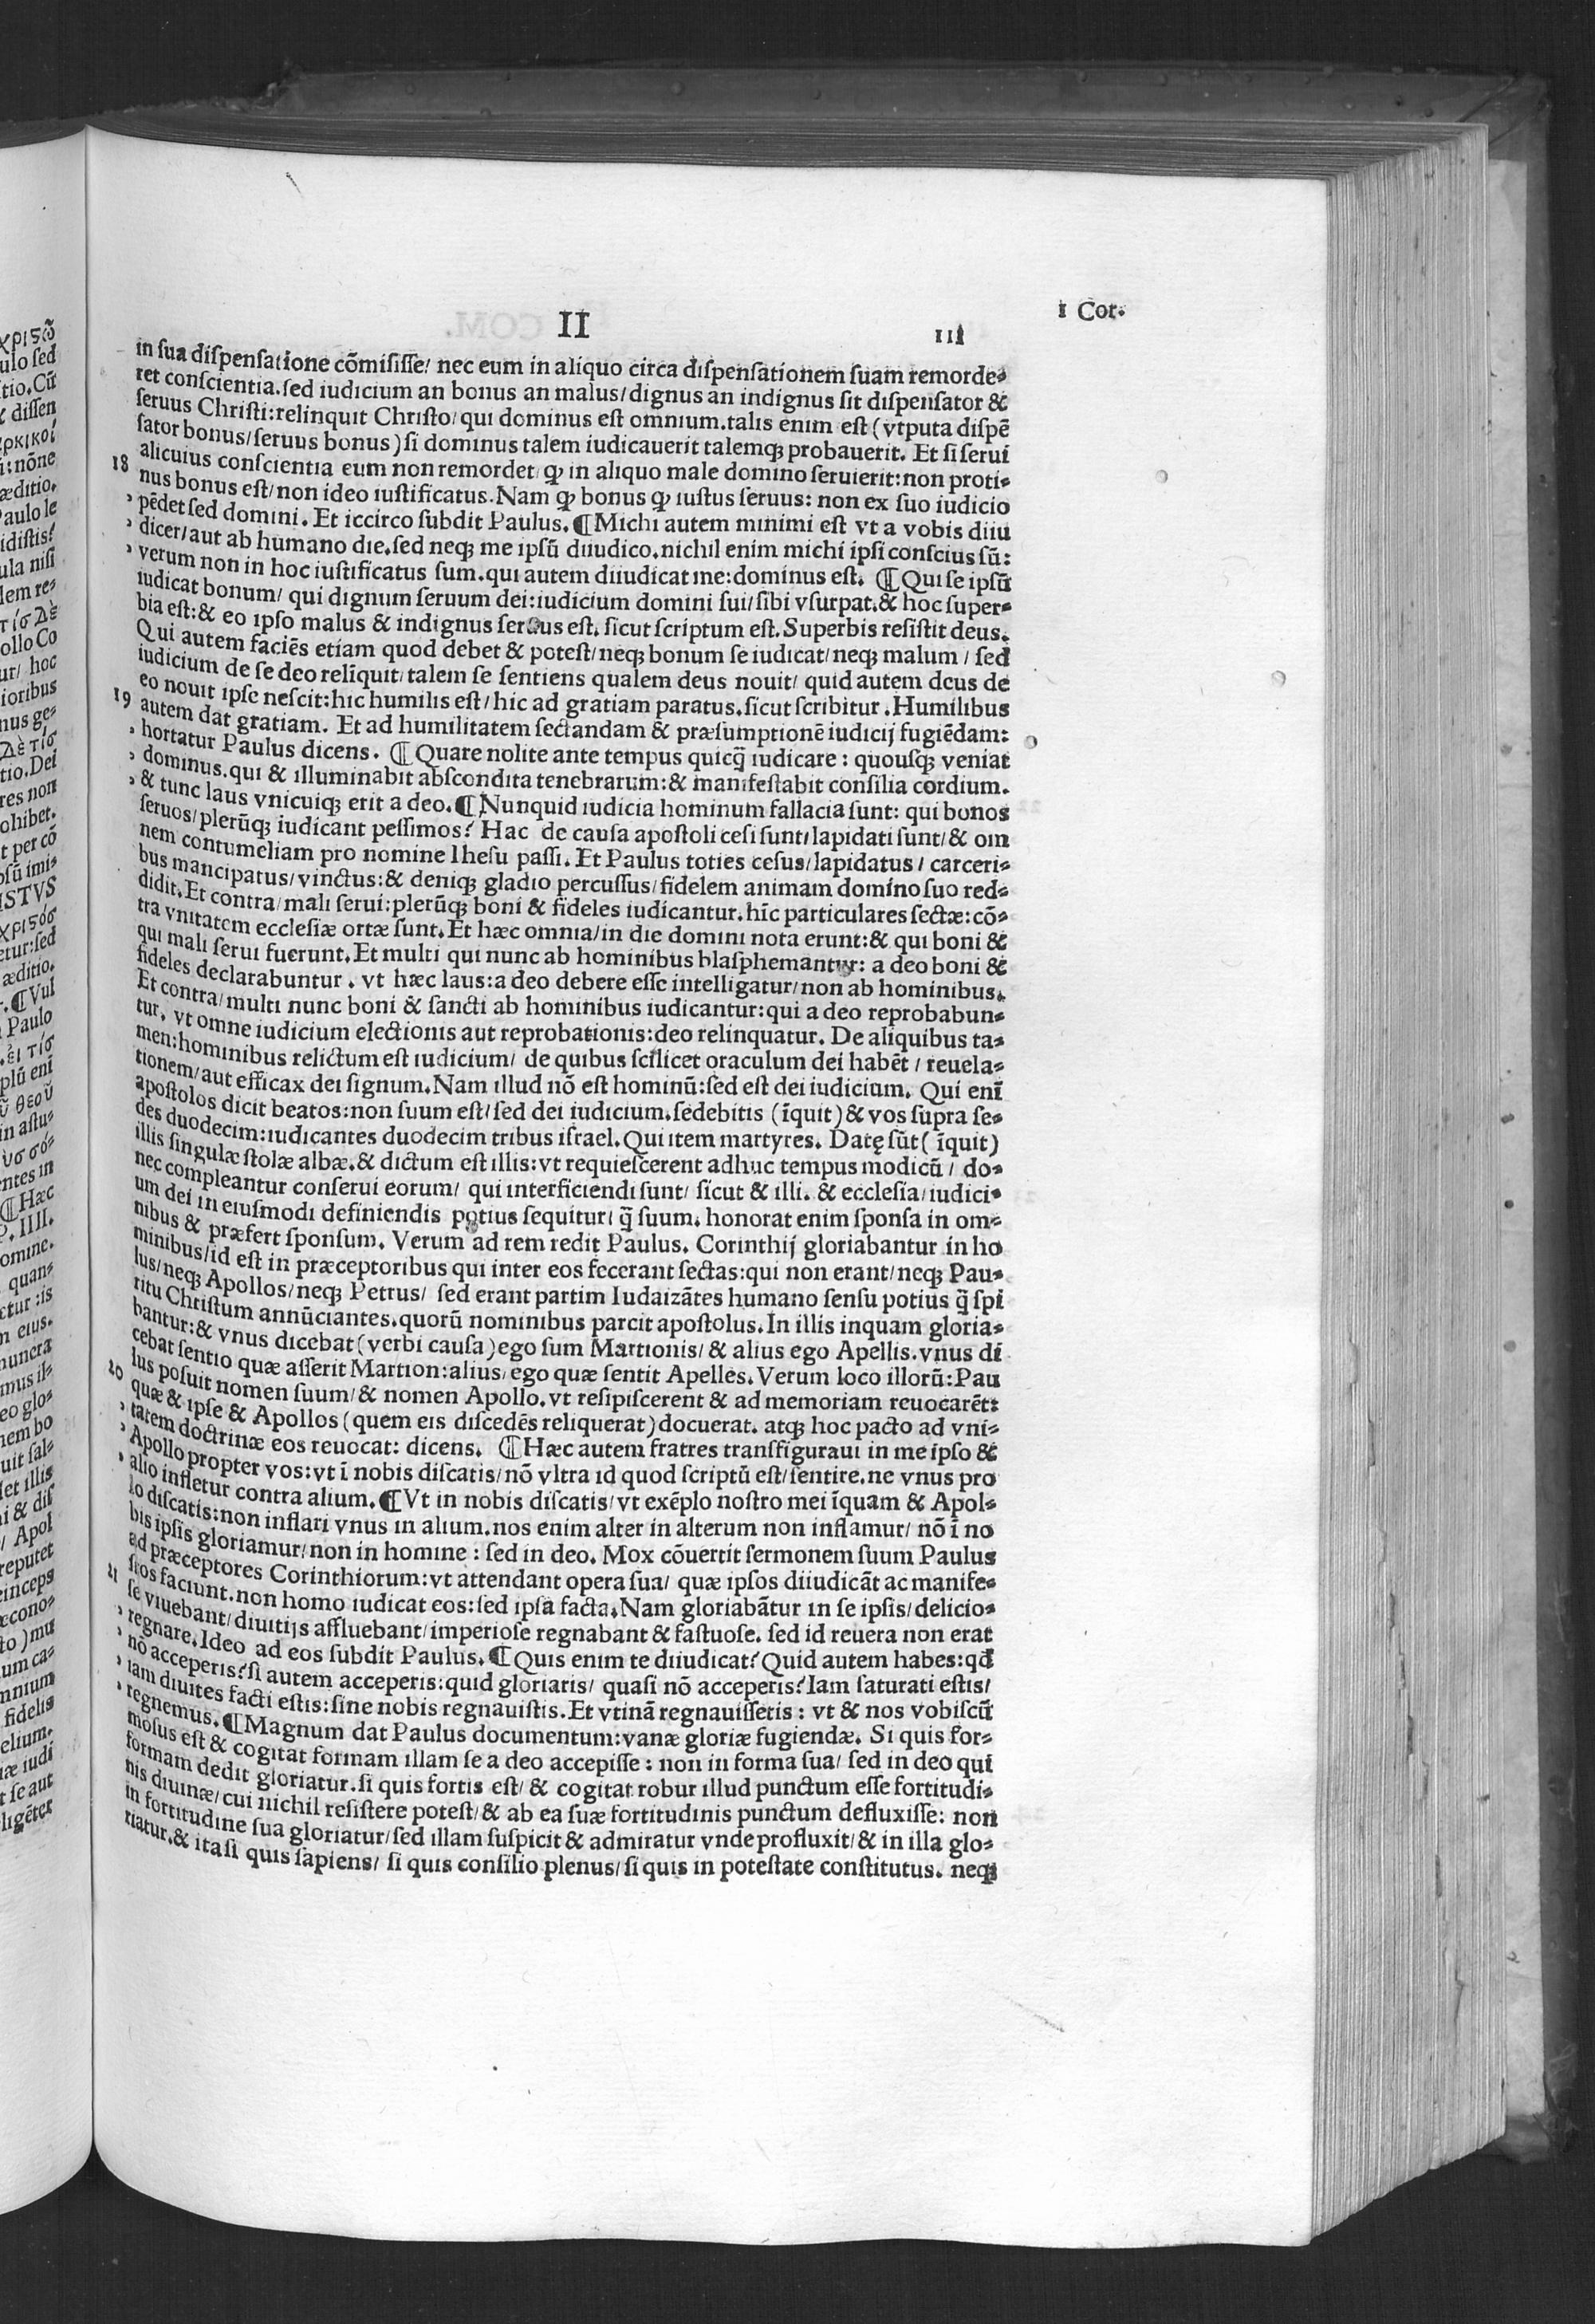 II
111
1 Cor.
in sua dispensatione cõmisisse/ nec eum in aliquo circa dispensationem suam remorde-
ret conscientia.sed iudicium an bonus an malus/dignus an indignus sit dispensator &
seruus Christi:relinquit Christo/ qui dominus est omnium.talis enim est (vtputa dispẽ
sator bonus/seruus bonus) si dominus talem iudicauerit talemqꝫ probauerit. Et si serui
18 alicuius conscientia eum non remordet/ ꝙ in aliquo male domino seruierit:non proti-
nus bonus est/non ideo iustificatus.Nam ꝙ bonus ꝙ iustus seruus: non ex suo iudicio
, pẽdet sed domini. Et iccirco subdit Paulus. ¶Michi autem minimi est vt a vobis diiu
, dicer/aut ab humano die.sed neqꝫ me ipsũ diiudico.nichil enim michi ipsi conscius sũ:
, verum non in hoc iustificatus sum.qui autem diiudicat me:dominus est. ¶Qui se ipsũ
iudicat bonum/ qui dignum seruum dei:iudicium domini sui/sibi vsurpat.& hoc super-
bia est:& eo ipso malus & indignus seruus est. sicut scriptum est.Superbis resistit deus.
Qui autem faciẽs etiam quod debet & potest/neqꝫ bonum se iudicat/neqꝫ malum/ sed
iudicium de se deo relĩquit/talem se sentiens qualem deus nouit/ quid autem deus de
19 eo nouit ipse nescit:hic humilis est/hic ad gratiam paratus.sicut scribitur.Humilibus
autem dat gratiam. Et ad humilitatem sectandam & præsumptionẽ iudicij fugiẽdam:
, hortatur Paulus dicens. ¶Quare nolite ante tempus quicq̃ iudicare: quousqꝫ veniat
, dominus.qui & illuminabit abscondita tenebrarum:& manifestabit consilia cordium.
, & tunc laus vnicuiqꝫ erit a deo.¶Nunquid iudicia hominum fallacia sunt: qui bonos
seruos/plerũqꝫ iudicant pessimos? Hac de causa apostoli cesi sunt/lapidati sunt/& om
nem contumeliam pro nomine Ihesu passi. Et Paulus toties cesus/lapidatus/ carceri-
bus mancipatus/vinctus:& deniqꝫ gladio percussus/fidelem animam domino suo red-
didit.Et contra/mali serui:plerũqꝫ boni & fideles iudicantur.hĩc particulares sectæ:cõ-
tra vnitatem ecclesiæ ortæ sunt.Et hæc omnia/in die domini nota erunt:& qui boni &
qui mali serui fuerunt.Et multi qui nunc ab hominibus blasphemantur: a deo boni &
fideles declarabuntur. vt hæc laus:a deo debere esse intelligatur/non ab hominibus.
Et contra/multi nunc boni & sancti ab hominibus iudicantur:qui a deo reprobabun-
tur. vt omne iudicium electionis aut reprobationis:deo relinquatur. De aliquibus ta-
men:hominibus relictum est iudicium/ de quibus scilicet oraculum dei habẽt/ reuela-
tionem/aut efficax dei signum.Nam illud nõ est hominũ:sed est dei iudicium. Qui enĩ
apostolos dicit beatos:non suum est/sed dei iudicium.sedebitis (ĩquit)& vos supra se-
des duodecim:iudicantes duodecim tribus israel.Qui item martyres. Datę sũt(ĩquit)
illis singulæ stolæ albæ.& dictum est illis:vt requiescerent adhuc tempus modicũ/ do-
nec compleantur conserui eorum/ qui interficiendi sunt/ sicut & illi. & ecclesia/iudici-
um dei in eiusmodi definiendis potius sequitur/ q̃ suum. honorat enim sponsa in om-
nibus & præfert sponsum. Verum ad rem redit Paulus. Corinthij gloriabantur in ho
minibus/id est in præceptoribus qui inter eos fecerant sectas:qui non erant/neqꝫ Pau-
lus/neqꝫ Apollos/neqꝫ Petrus/ sed erant partim Iudaizãtes humano sensu potius q̃ spi
ritu Christum annũciantes.quorũ nominibus parcit apostolus.In illis inquam gloria-
bantur:& vnus dicebat (verbi causa)ego sum Martionis/& alius ego Apellis.vnus di
cebat sentio quæ asserit Martion:alius/ego quæ sentit Apelles.Verum loco illorũ:Pau
20 lus posuit nomen suum/& nomen Apollo.vt resipiscerent & ad memoriam reuocarẽt:
quæ & ipse & Apollos (quem eis discedẽs reliquerat)docuerat. atqꝫ hoc pacto ad vni-
, tatem doctrinæ eos reuocat: dicens. ¶Hæc autem fratres transfiguraui in me ipso &
, Apollo propter vos:vt ĩ nobis discatis/nõ vltra id quod scriptũ est/sentire.ne vnus pro
, alio infletur contra alium.¶Vt in nobis discatis/vt exẽplo nostro mei ĩquam & Apol-
lo discatis:non inflari vnus in alium.nos enim alter in alterum non inflamur/ nõ ĩ no
bis ipsis gloriamur/non in homine: sed in deo. Mox cõuertit sermonem suum Paulus
ad præceptores Corinthiorum:vt attendant opera sua/ quæ ipsos diiudicãt ac manife-
21 stos faciunt.non homo iudicat eos:sed ipsa facta.Nam gloriabãtur in se ipsis/delicio-
se viuebant/diuitijs affluebant/imperiose regnabant & fastuose. sed id reuera non erat
, regnare.Ideo ad eos subdit Paulus.¶Quis enim te diiudicat?Quid autem habes:qđ
, nõ acceperis?si autem acceperis:quid gloriaris/ quasi nõ acceperis?Iam saturati estis/
, iam diuites facti estis:sine nobis regnauistis.Et vtinã regnauissetis: vt & nos vobiscũ
, regnemus.¶Magnum dat Paulus documentum:vanæ gloriæ fugiendæ. Si quis for-
mosus est & cogitat formam illam se a deo accepisse: non in forma sua/ sed in deo qui
formam dedit gloriatur.si quis fortis est/ & cogitat robur illud punctum esse fortitudi-
nis diuinæ/cui nichil resistere potest/& ab ea suæ fortitudinis punctum defluxisse: non
in fortitudine sua gloriatur/sed illam suspicit & admiratur vnde profluxit/& in illa glo-
riatur.& ita si quis sapiens/ si quis consilio plenus/si quis in potestate constitutus. neqꝫ